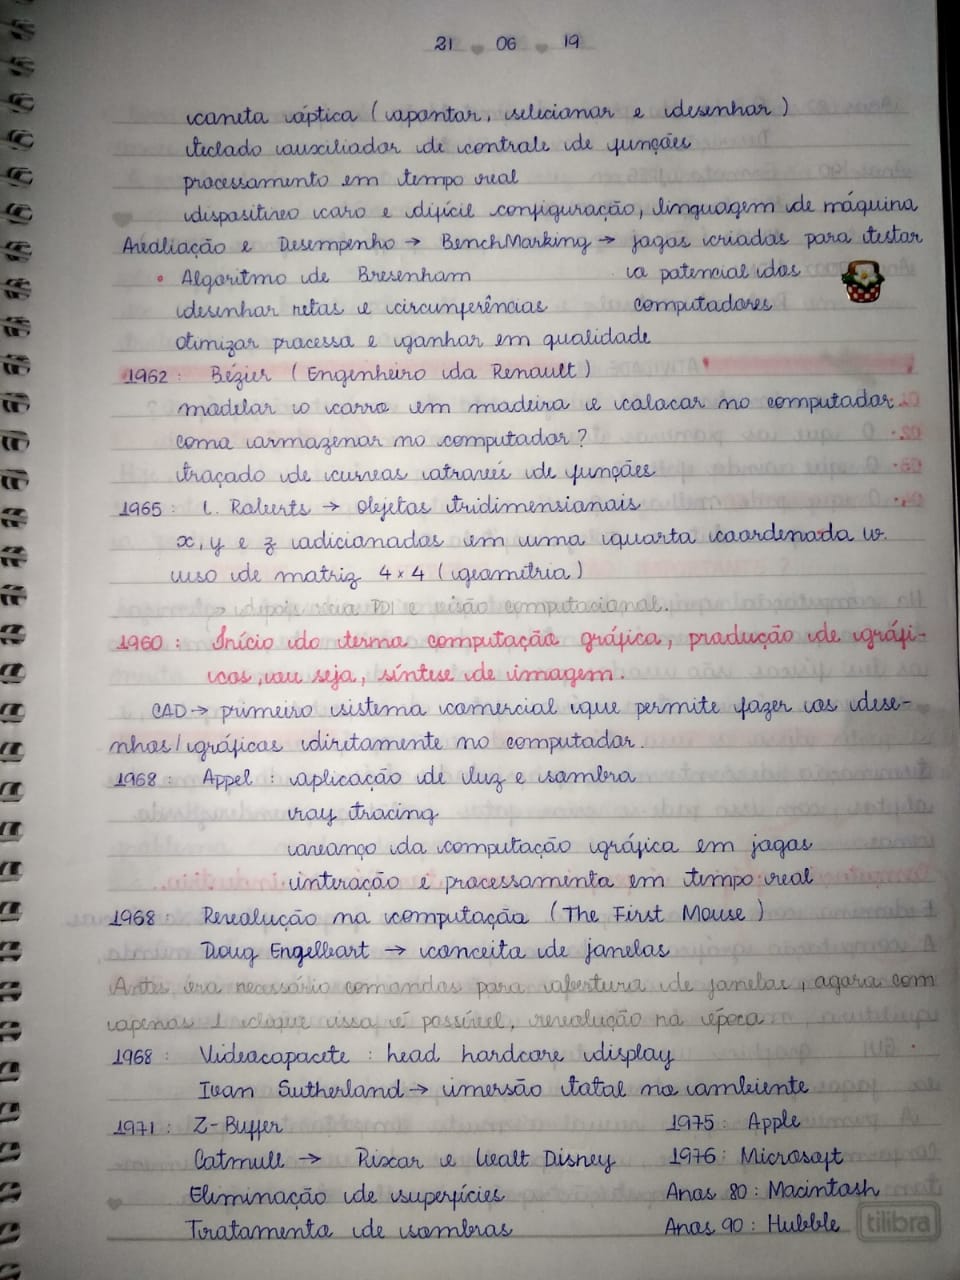 21 06 19
caneta óptica (apontar, selecionar e desenhar)
teclado auxiliador de controle de funções
processamento em tempo real
dispositivo caro e difícil configuração, linguagem de máquina
Avaliação e Desempenho → BenchMarking → jogos criados para testar
• Algoritmo de Bresenham o potencial dos
desenhar retas e circunferências computadores
otimizar processo e ganhar em qualidade
1962: Bézier (Engenheiro da Renault)
modelar o carro em madeira e colocar no computador
como armazenar no computador?
traçado de curvas através de funções
1965: L. Roberts → objetos tridimensionais
x, y e z adicionadas em uma quarta coordenada w.
uso de matriz 4x4 (geometria)
→ depois veio PDI e visão computacional.
1960: Início do termo computação gráfica, produção de gráfi-
cos, ou seja, síntese de imagem.
CAD → primeiro sistema comercial que permite fazer os dese-
nhos/gráficos diretamente no computador.
1968: Appel: aplicação de luz e sombra
ray tracing
avanço da computação gráfica em jogos
interação e processamento em tempo real
1968: Revolução na computação (The First Mouse)
Doug Engelbart → conceito de janelas
Antes era necessário comandos para abertura de janelas, agora com
apenas 1 clique isso é possível, revolução na época
1968: Videocapacete: head hardcore display
Ivan Sutherland → imersão total no ambiente
1971: Z-Buffer 1975: Apple
Catmull → Pixar e Walt Disney 1976: Microsoft
Eliminação de superfícies Anos 80: Macintosh
Tratamento de sombras Anos 90: Hubble
tilibra